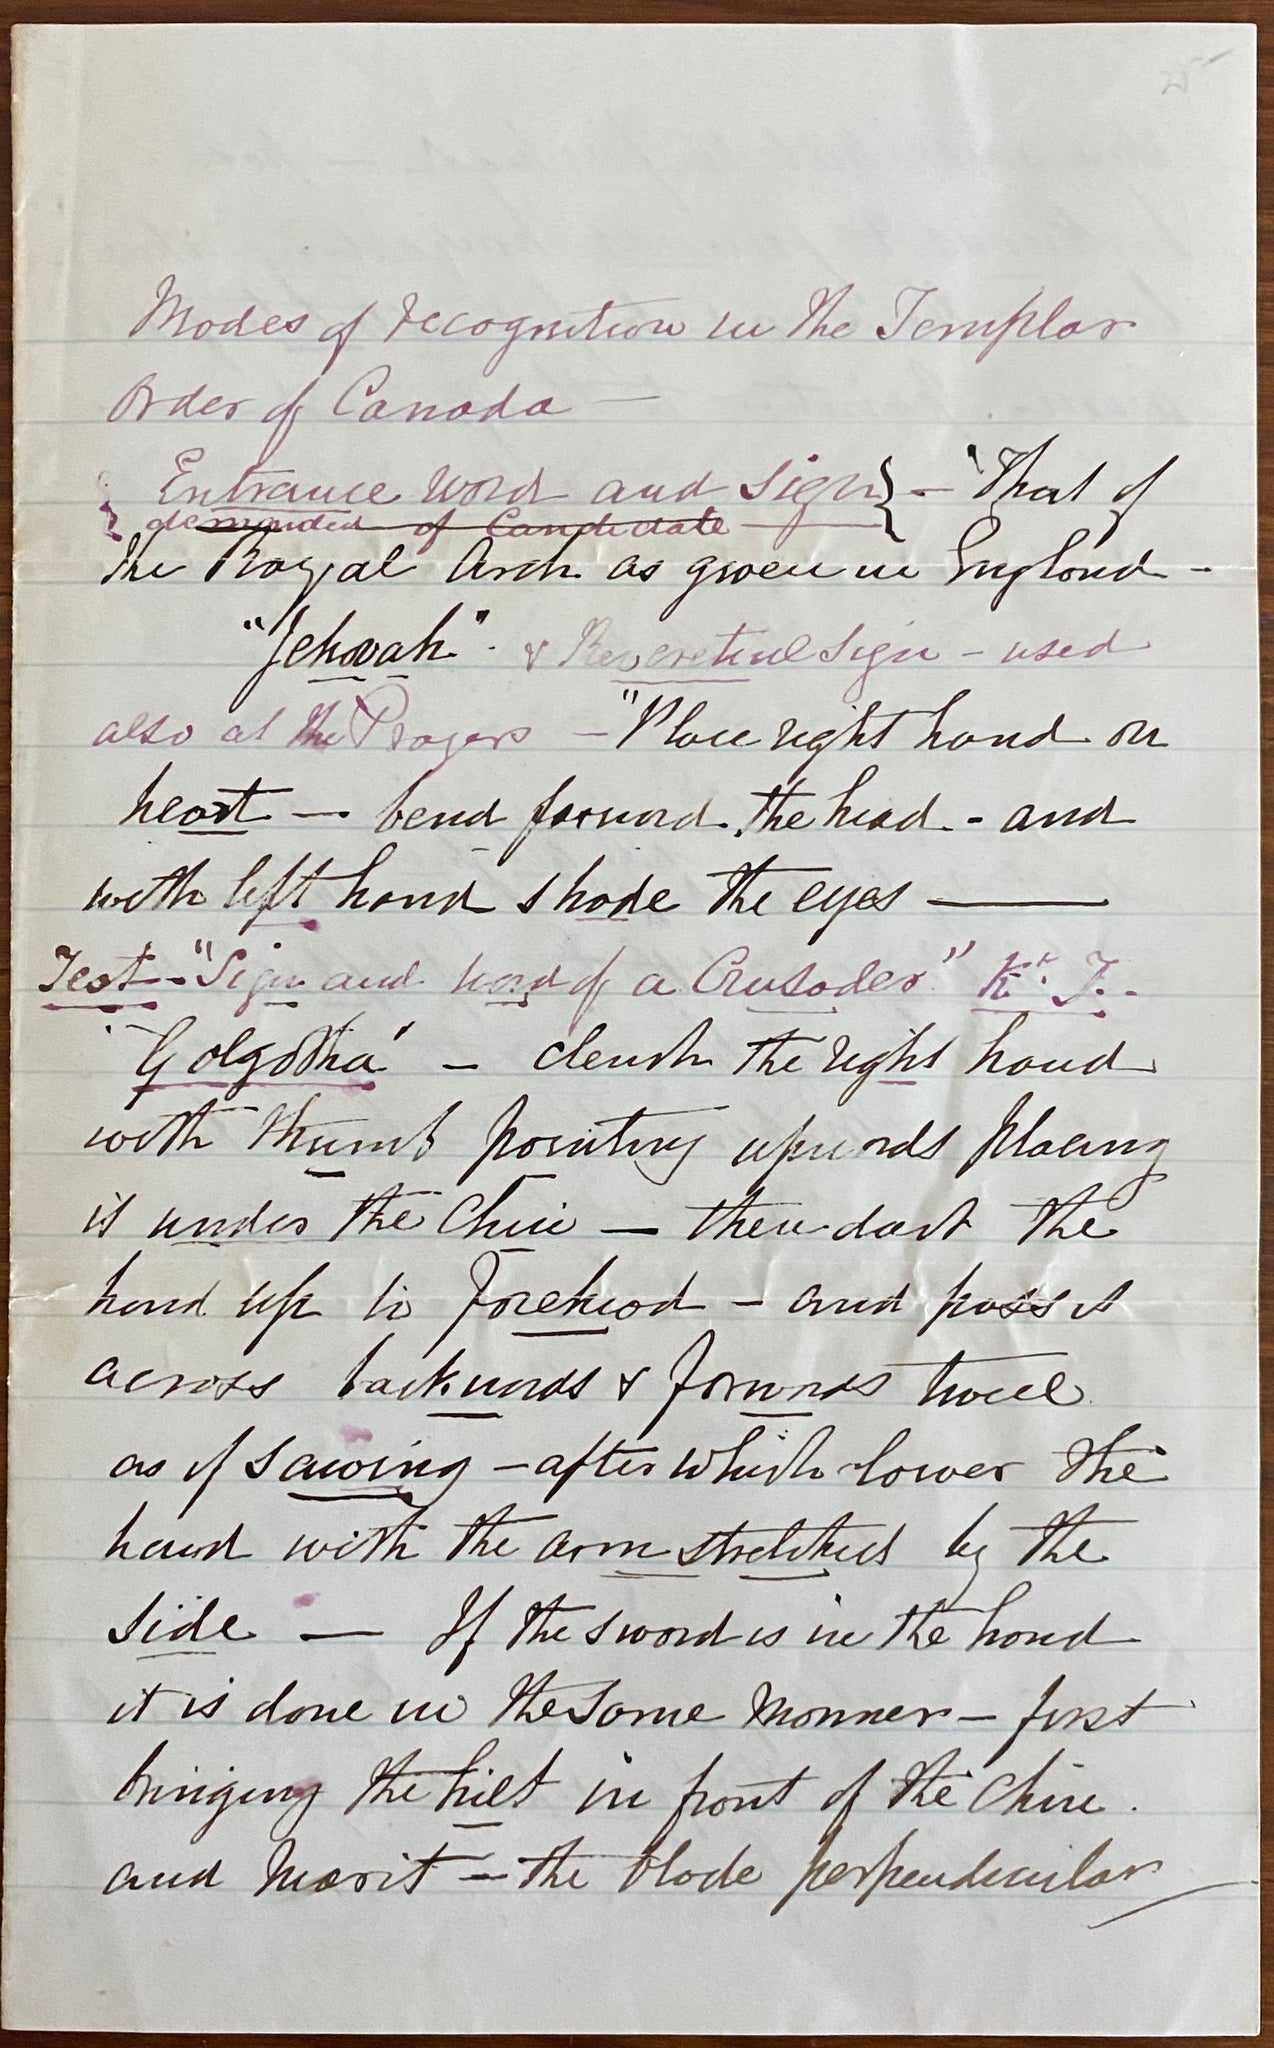 Modes of recognition in the Templar
Order of Canada —
{ Entrance word and Sign } — "That of
demanded of Candidate
the Royal Arch as given in England —
"Jehovah" - & Reverential Sign - used
also at the Prayers — "Place right hand on
heart — bend forward the head - and
with left hand shade the eyes ———
Test - "Sign and word of a Crusader" Kt. T. -
"Golgotha" — clench the right hand
with thumb pointing upwards placing
it under the Chin — then dart the
hand up to Forehead — and pass it
across backwards & forwards twice
as if sawing — after which lower the
hand with the arm stretched by the
side — If the sword is in the hand
it is done in the same manner — first
bringing the hilt in front of the Chin.
and — the blade perpendicular